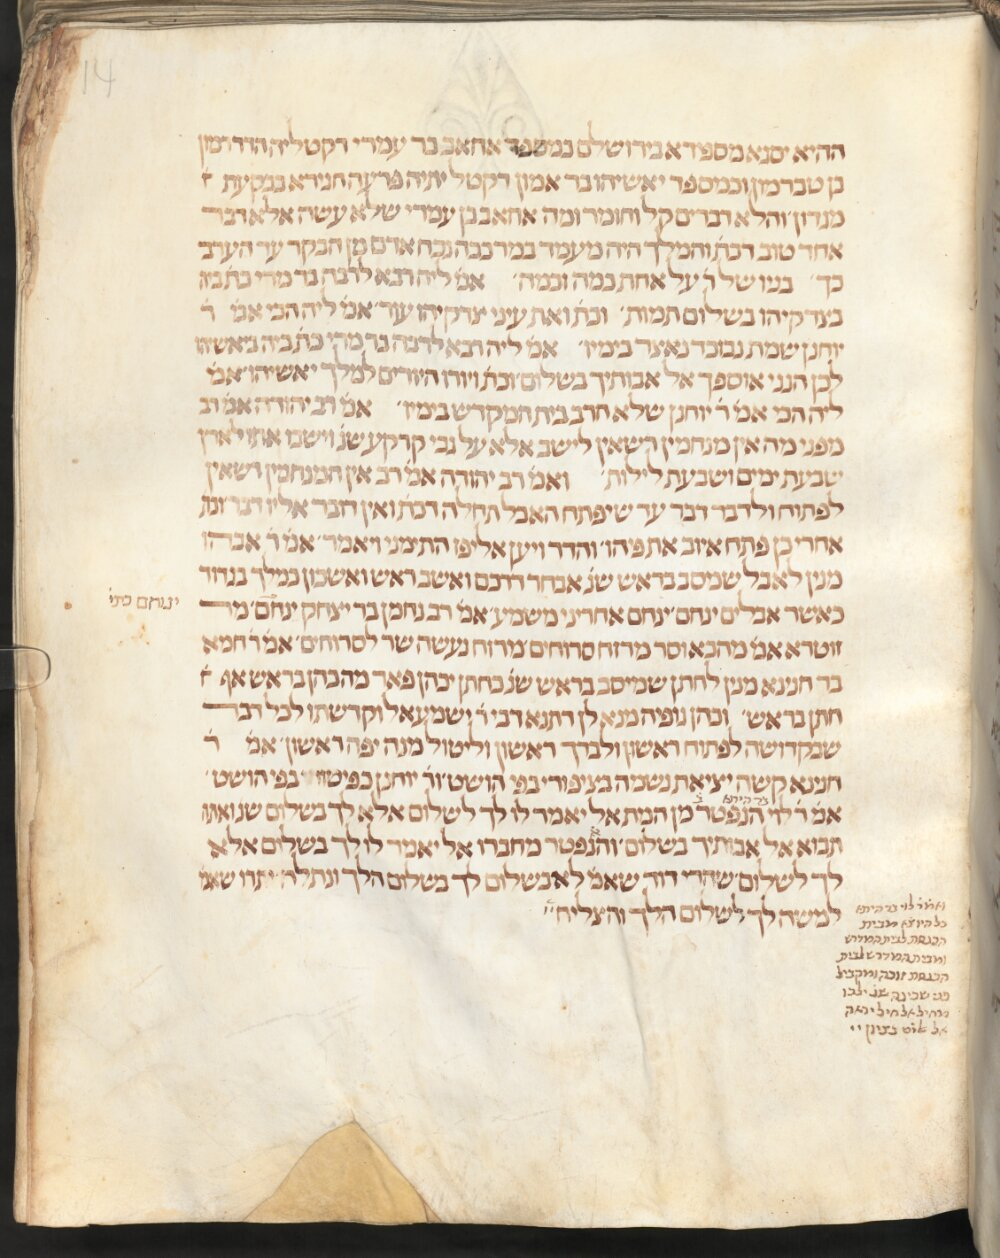 14
ההיא יסגא מספידא בירושלם כמספד אחאב בר עמרי דקטל יתיה הדדרמון
בן טברמון וכמספד יאשיהו בר אמון דקטל יתיה פרעה חגירא בבקעת
מגדון׳ והלא דברים קל וחומר ומה אחאב בן עמרי שלא עשה אלא דבר
אחד טוב דכת׳ והמלך היה מעמד במרכבה נכח אדם מן הבקר עד הערב
כך׳ בניו של ר׳ על אחת כמה וכמה׳ אמ׳ ליה רבא לרבה בר מרי כת׳ בו
בצדקיהו בשלום תמות׳ וכת׳ ואת עיני צדקיהו עור׳ אמ׳ ליה הכי אמ׳ ר׳
יוחנן שמת נבוכד נאצר בימיו׳ אמ׳ ליה רבא לרבה בר מרי כת׳ ביה ביאשיהו
לכן הנני אוספך אל אבותיך בשלום׳ וכת׳ ויורו היורים למלך יאשיהו׳ אמ׳
ליה הכי אמ׳ ר׳ יוחנן שלא חרב בית המקדש בימיו׳ אמ׳ רב יהודה אמ׳ רב
מפני מה אין מנחמין רשאין לישב אלא על גבי קרקע שנ׳ וישבו אתו לארץ
שבעת ימים ושבעת לילות׳ ואמ׳ רב יהודה אמ׳ רב אין המנחמין רשאין
לפתוח ולדבר דבר עד שיפתח האבל תחלה דכת׳ ואין דובר אליו דבר׳ וכת׳
אחרי כן פתח איוב את פיהו׳ והדר ויען אליפז התימני ויאמר׳ אמ׳ ר׳ אבהו
מנין לאבל שמסב בראש שנ׳ אבחר דרכם ואשב ראש ואשכון כמלך בגדוד
כאשר אבלים ינחם׳ ינחם אחריני משמע׳ אמ׳ רב נחמן בר יצחק ינחם׳ מר
ינוחם כתי׳
זוטרא אמ׳ מהכא וסר מרזח סרוחים׳ מרזח נעשה שר לסרוחים׳ אמ׳ ר׳ חמא
בר חנינא מנין לחתן שמיסב בראש שנ׳ כחתן יכהן פאר מה כהן בראש אף
חתן בראש׳ וכהן גופיה מנא לן דתנא דבי ר׳ ישמעאל וקדשתו לכל דבר
שבקדושה לפתוח ראשון ולברך ראשון וליטול מנה יפה ראשון׳ אמ׳ ר׳
חנינא קשה יציאת נשמה בציפורי בפי הושט׳ ור׳ יוחנן כפיטורי בפי הושט׳
בר היתא
אמ׳ ר׳ לוי הנפטר מן המת אל יאמר לו לך לשלום אלא לך בשלום שנ׳ ואתה
תבוא אל אבותיך בשלום׳ והנפטר מחברו אל יאמר לו לך בשלום אלא
לך לשלום׳ שהרי דוד שאמ׳ לאבשלום לך בשלום הלך ונתלה׳ יתרו שאמ׳
למשה לך לשלום הלך והצליח׃
ואמ׳ ר׳ לוי בר היתא
כל היוצא מבית
הכנסת לבית המדרש
ומבית המדרש לבית
הכנסת זוכה ומקביל
פני שכינה שנ׳ ילכו
מחיל אל חיל יראה
אל אלים בציון